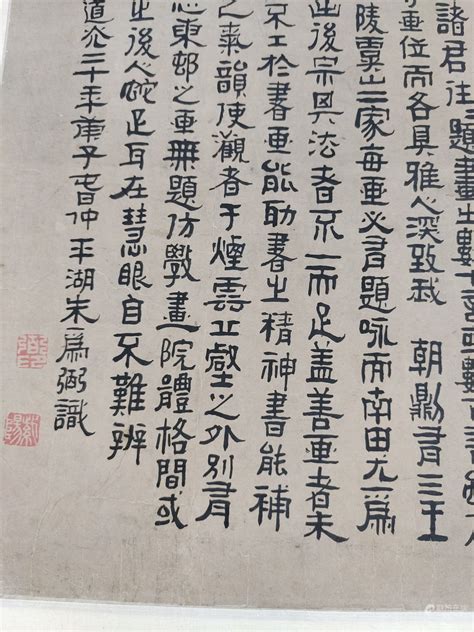 諸君往題畫
位而各具雅人深致我 朝則有三王
陵虞山二家每畫必有題咏而南田尤為
後宗其法者不一而足蓋善畫者未
不工於書畫能助書之精神書能補
之氣韻使觀者于煙雲丘壑之外別有
東邨之畫無題仿學畫院體格間或
出後人蛇足耳在慧眼自不難辨
道光二十年庚子春仲平湖朱為弼識